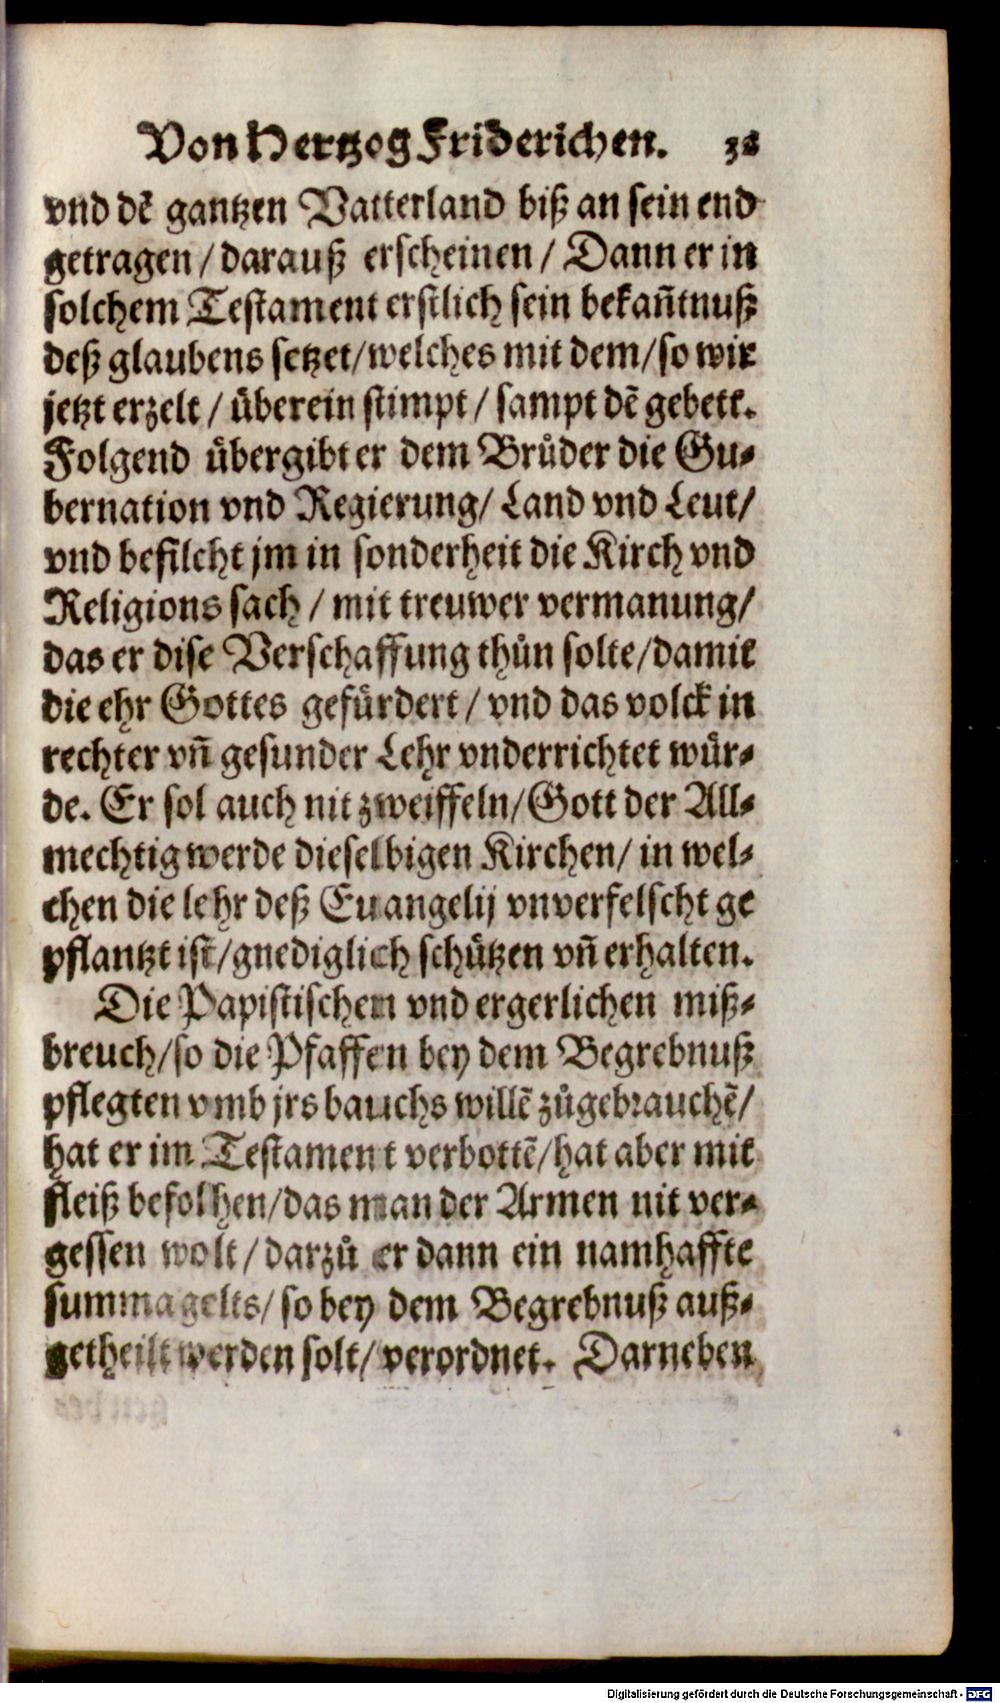 Von Hertzog Friderichen.
vnd dē gantzen Vatterland biß an sein end
getragen / darauß erscheinen / Dann er in
solchem Testament erstlich sein bekañtnuß
deß glaubens setzet/welches mit dem/so wir
jetzt erzelt / überein stimpt / sampt dē gebett.
Folgend übergibt er dem Brůder die Gu-
bernation vnd Regierung/ Land vnd Leut/
vnd befilcht jm in sonderheit die Kirch vnd
Religions sach / mit treuwer vermanung/
das er dise Verschaffung thůn solte/damit
die ehr Gottes gefürdert / vnd das volck in
rechter vñ gesunder Lehr vnderrichtet wür-
de. Er sol auch nit zweiffeln/Gott der All-
mechtig werde dieselbigen Kirchen/ in wel-
chen die lehr deß Euangelij vnverfelscht ge
pflantzt ist/gnediglich schützen vñ erhalten.
Die Papistischen vnd ergerlichen miß-
breuch/so die Pfaffen bey dem Begrebnuß
pflegten vmb jrs bauchs willē zůgebrauchē/
hat er im Testament verbottē/hat aber mit
fleiß befolhen/das man der Armen nit ver-
gessen wolt / darzů er dann ein namhaffte
summa gelts/ so bey dem Begrebnuß auß-
getheilt werden solt/ verordnet. Darneben
Digitalisierung gefördert durch die Deutsche Forschungsgemeinschaft - DFG